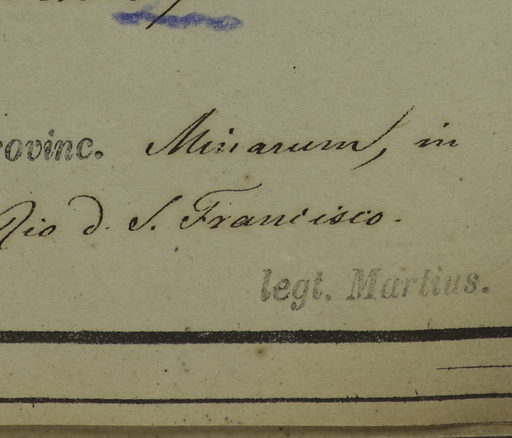 rovinc. Minarum, in
Rio d. S. Francisco.
legt. Martius.